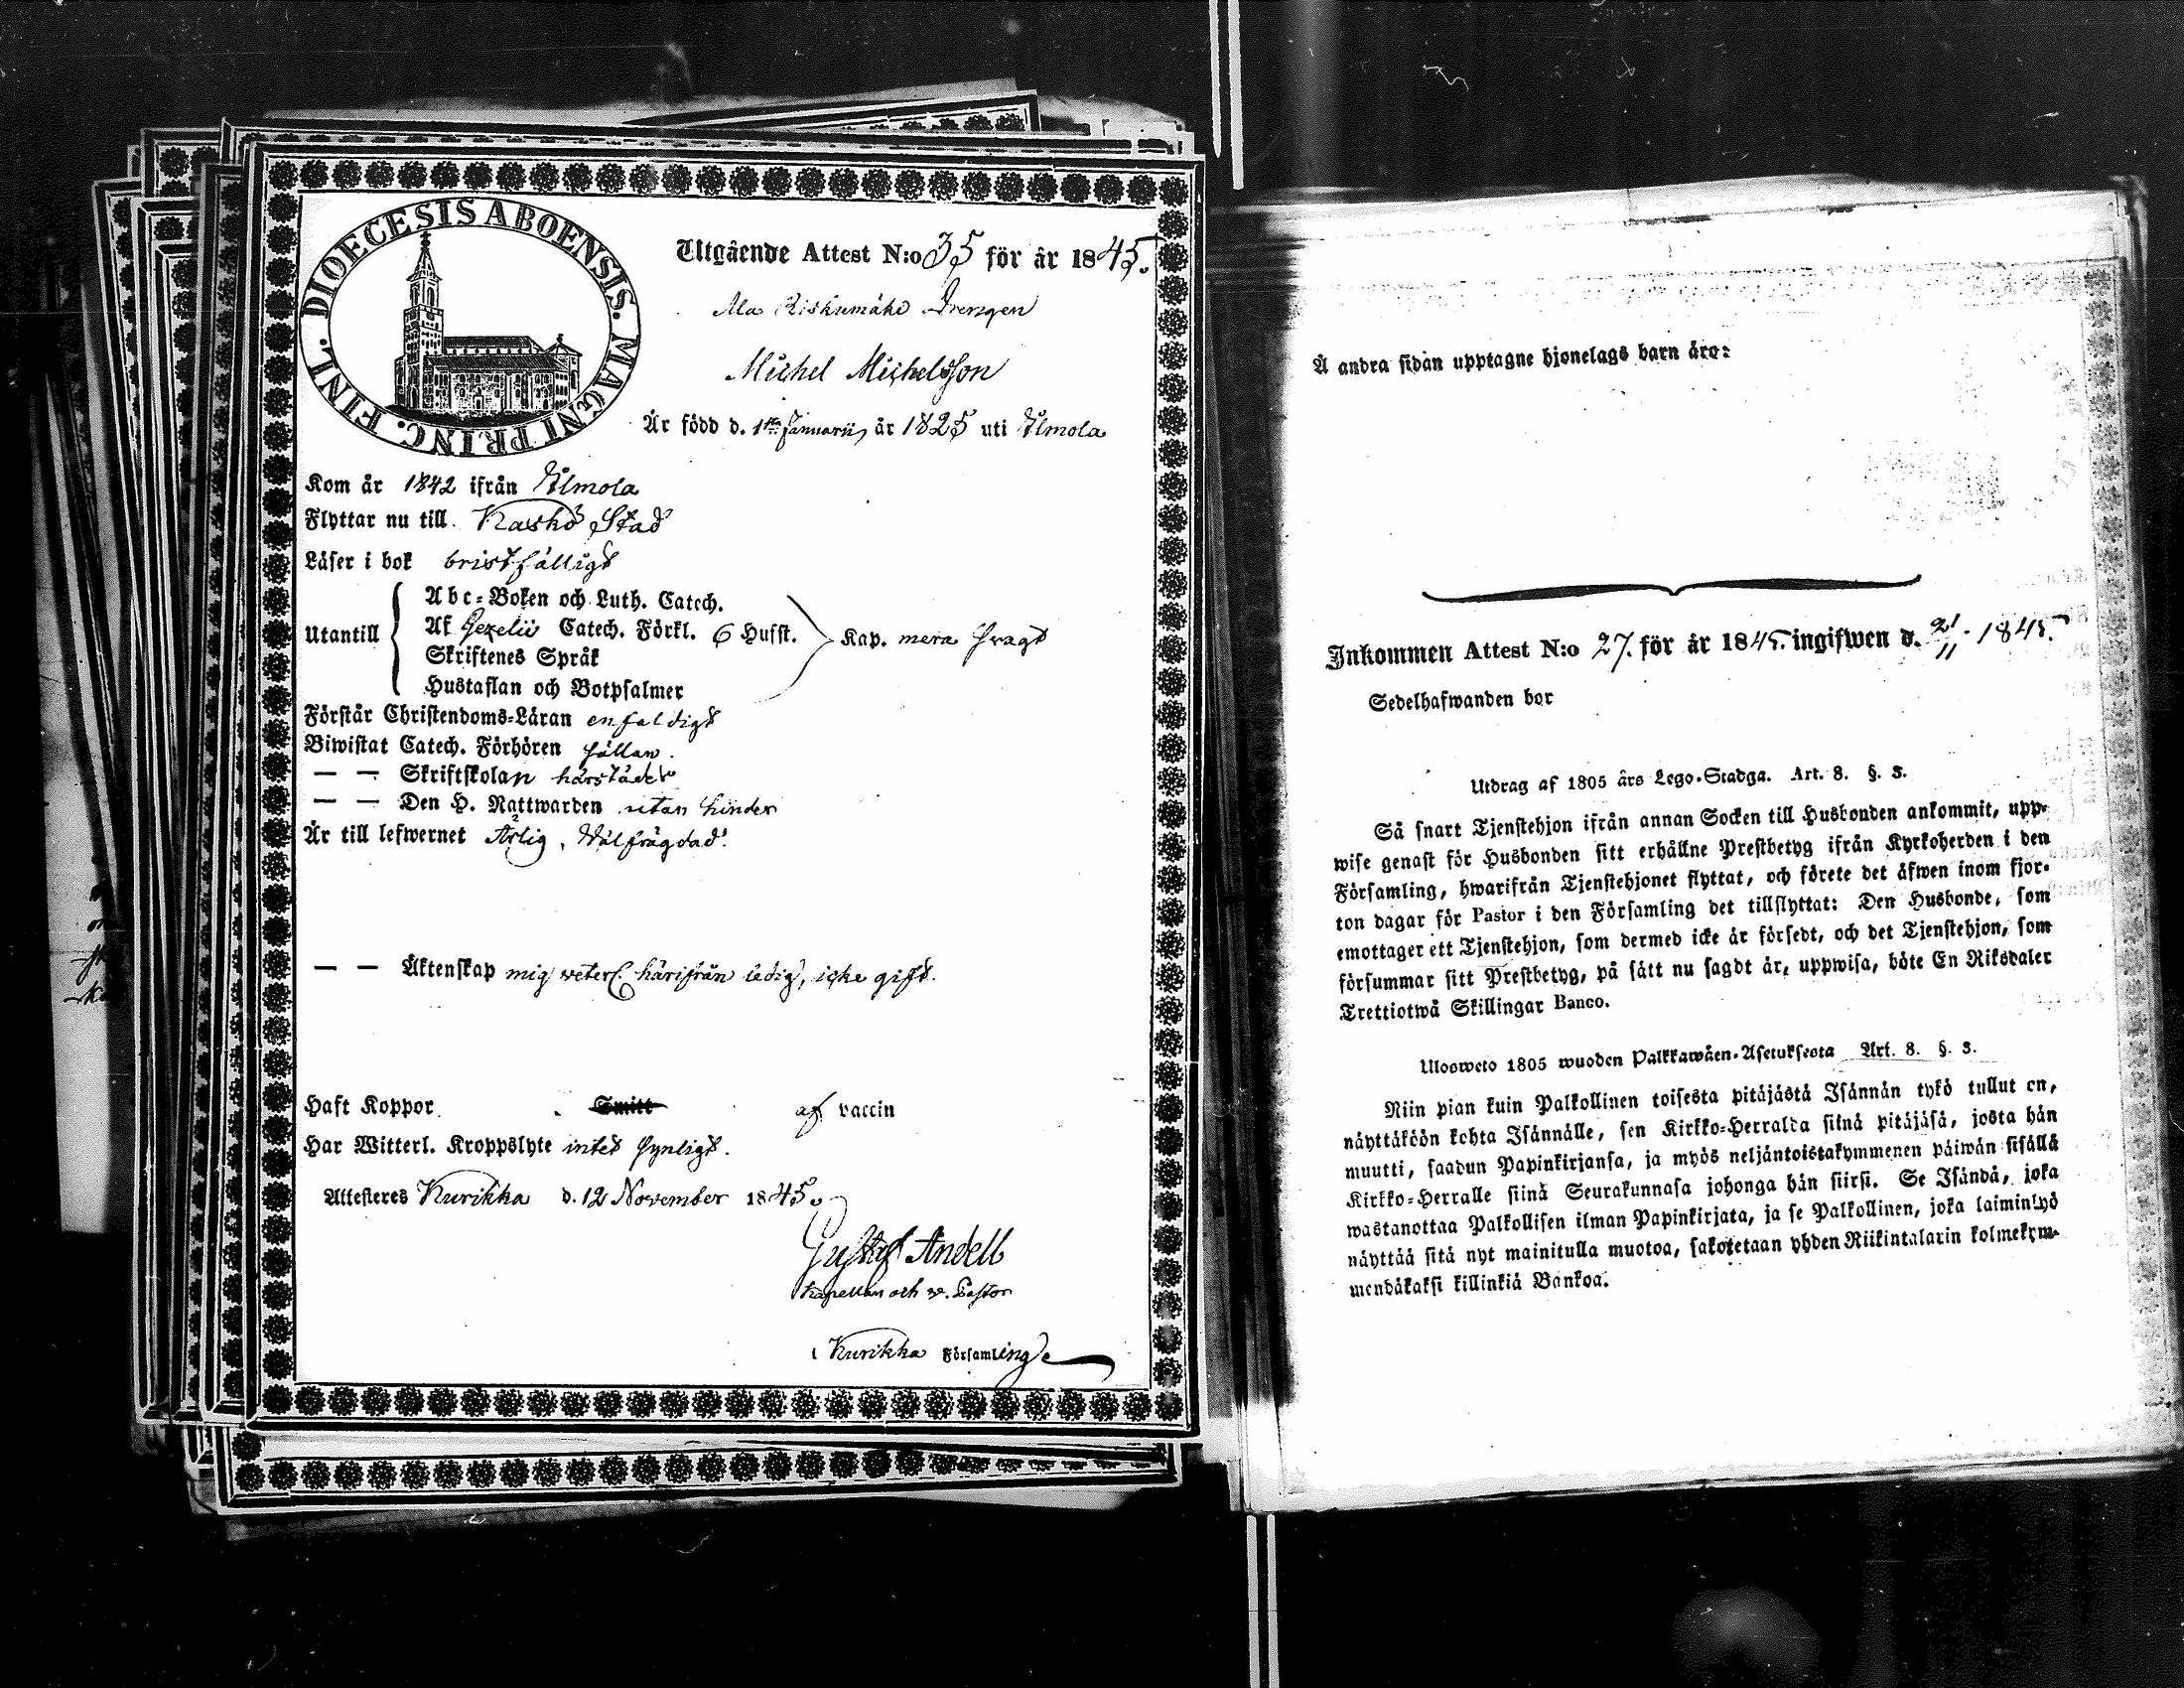 DIOECESIS ABOENSIS. MAGNI PRINC. FINL.
Utgående Attest N:o 35 för år 1845.
Ala Riskumäki Drengen
Michel Michelsson
Är född d. 1sta Januarii, år 1825 uti Ilmola
Kom år 1842 ifrån Ilmola
Flyttar nu till Kaskö Stad
Läser i bok bristfälligt
Utantill
Abc-Boken och Luth. Catech.
Af Gezelii Catech. Förkl. 6 Hufst.
Skriftenes Språk
Hustaflan och Botpsalmer
Kap. mera svagt
Förstår Christendoms-Läran enfaldigt
Biwistat Catech. Förhören sällan.
— — Skriftskolan härstädes
— — Den H. Nattwarden utan hinder
Är till lefwernet Ärlig, Wälfrägdad.
— — Äktenskap mig veterl. härifrån ledig, icke gift.
Haft Koppor Smitt af vaccin
Har Witterl. Kroppslyte intet synligt.
Attesteres Kurikka d. 12 November 1845.
Gustaf Andell
Kapellan och v. Pastor
i Kurikka Församling
Å andra sidan upptagne hjonelags barn äro:
Inkommen Attest N:o 27. för år 1845. ingifwen d. 21/11. 1845.
Sedelhafwanden bor
Utdrag af 1805 års Lego-Stadga. Art. 8. §. 3.
Så snart Tjenstehjon ifrån annan Socken till Husbonden ankommit, upp-
wise genast för Husbonden sitt erhållne Prestbetyg ifrån Kyrkoherden i den
Församling, hwarifrån Tjenstehjonet flyttat, och förete det äfwen inom fjor-
ton dagar för Pastor i den Församling det tillflyttat: Den Husbonde, som
emottager ett Tjenstehjon, som dermed icke är försedt, och det Tjenstehjon, som
försummar sitt Prestbetyg, på sätt nu sagdt är, uppwisa, böte En Riksdaler
Trettiotwå Skillingar Banco.
Ulosweto 1805 wuoden Palkkawäen-Asetuksesta Art. 8. §. 3.
Niin pian kuin Palkollinen toisesta pitäjästä Isännän tykö tullut on,
näyttäköön kohta Isännälle, sen Kirkko-Herralda siinä pitäjäsä, josta hän
muutti, saadun Papinkirjansa, ja myös neljäntoistakymmenen päiwän sisällä
Kirkko-Herralle siinä Seurakunnasa johonga hän siirsi. Se Isändä, joka
wastanottaa Palkollisen ilman Papinkirjata, ja se Palkollinen, joka laiminlyö
näyttää sitä nyt mainitulla muotoa, sakotetaan yhden Riikintalarin kolmekym-
mendäkaksi killinkiä Bankoa.